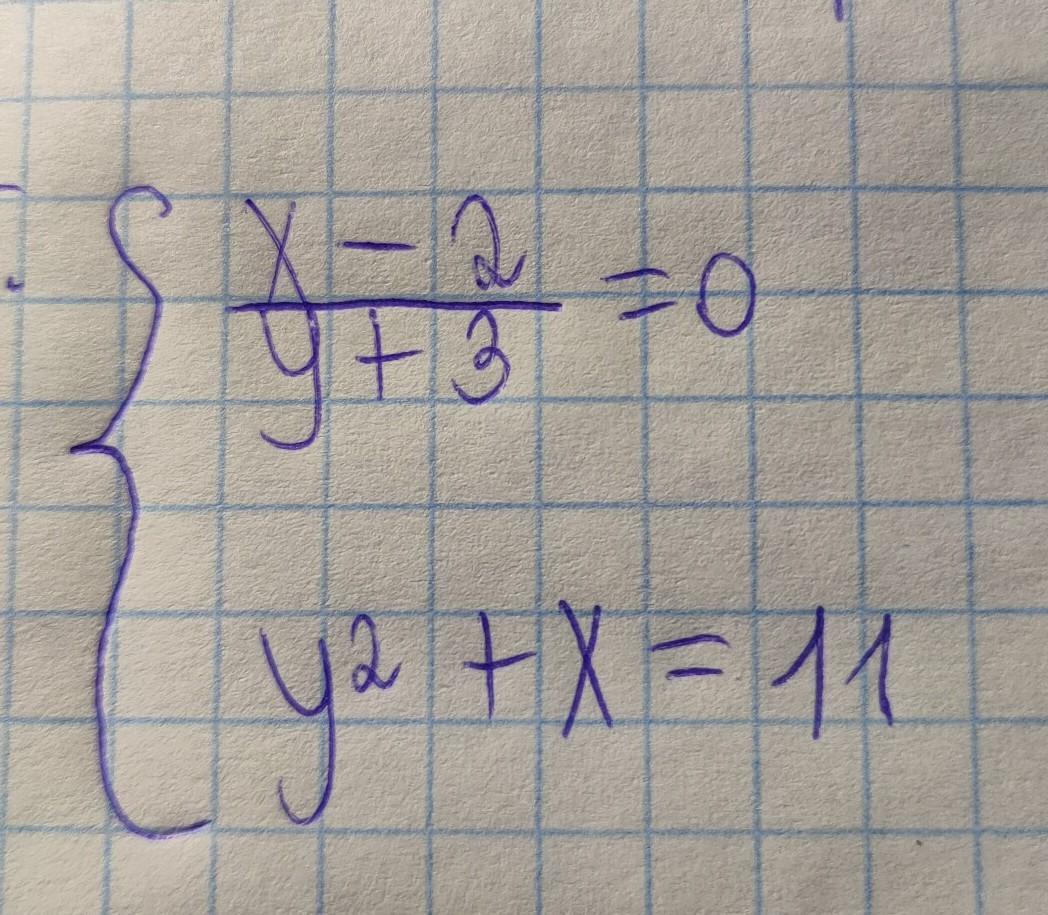 x - 2
y + 3 = 0
y² + x = 11